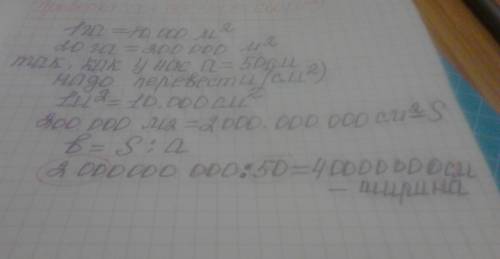 1га = 10.000 м²
20 га = 200 000 м²
так, как у нас a = 50см
надо перевести (см²)
1м² = 10.000 см²
200 000 м2 = 2000.000 000 см² = S
в = S : a
2 000 000 000 : 50 = 40000000 см
– ширина